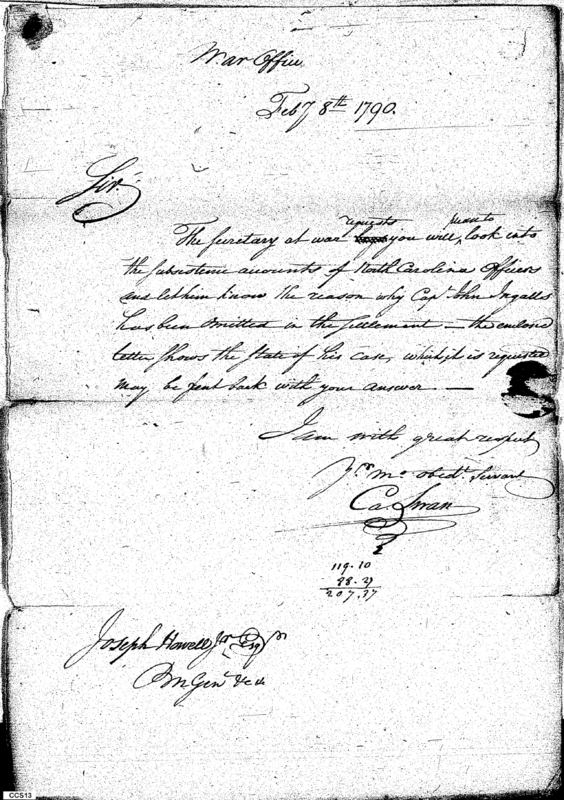 War Office
Feby 8th 1790.
Sir
The Secretary at war requests you will, look into
the subsistence accounts of North Carolina Officers
and let him know the reason why Capt John Ingalls
has been omitted in the settlement — the enclosd
letter shows the state of his case, which it is requested
may be sent back with your answer. —
I am with great respect
Yr mo obedt. Servant
Ca. Swan
119.10
88.27
207.37
Joseph Howell Jr Esqr
Genl &ca
CCS13